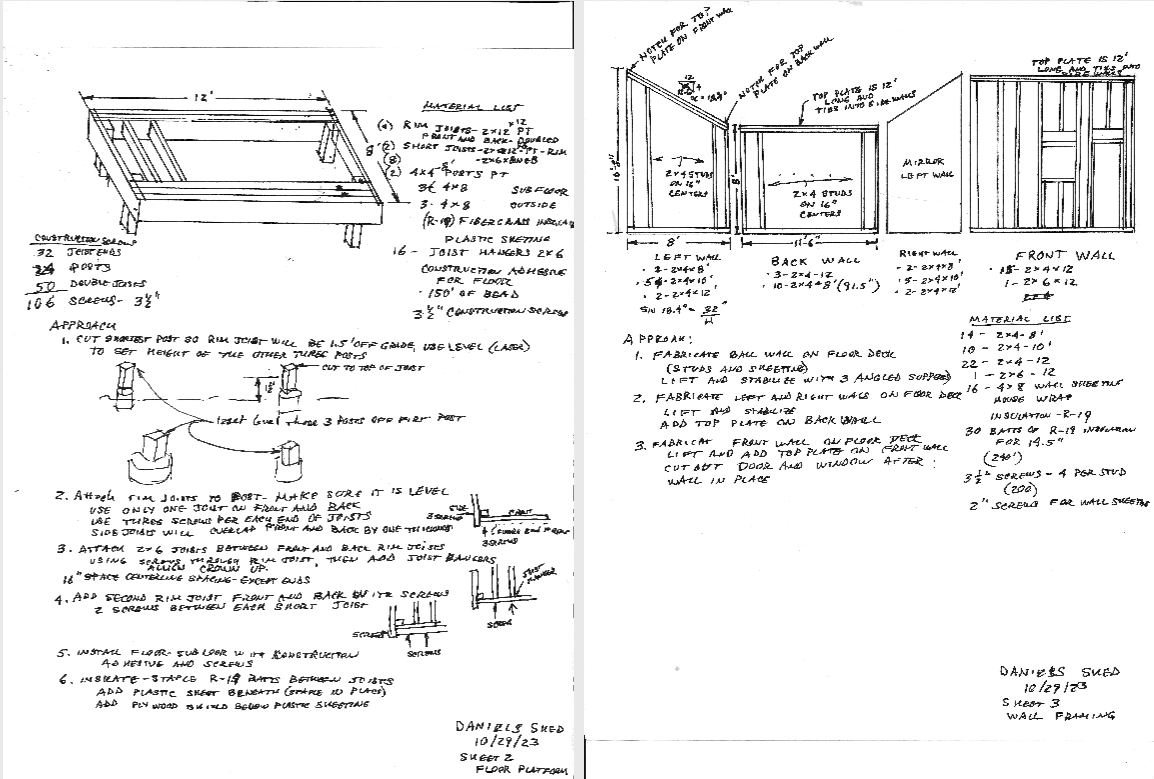 12'
8'
MATERIAL LIST
(4) RIM JOISTS - 2×12 ×12 PT
FRONT AND BACK - DOUBLED
(2) SHORT JOISTS - PT - RIM
(8)
(2) 4×4 8' POSTS PT
3 4×8 SUBFLOOR
3 - 4×8 OUTSIDE
(R-19) FIBERGLASS
PLASTIC SHEETING
16 - JOIST HANGERS 2×6
CONSTRUCTION ADHESIVE
FOR FLOOR
• 150' OF BEAD
3 1/2" CONSTRUCTION SCREWS
CONSTRUCTION SCREWS
32 JOIST ENDS
24 POSTS
50 DOUBLE JOISTS
106 SCREWS - 3 1/2"
APPROACH
1. CUT SHORTEST POST SO RIM JOIST WILL BE 1.5' OFF GRADE, USE LEVEL (LASER)
TO SET HEIGHT OF THE OTHER THREE POSTS
CUT TO TOP OF JOIST
Laser level These 3 POSTS OFF FIRST POST
2. Attach RIM JOISTS TO POST - MAKE SURE IT IS LEVEL
USE ONLY ONE JOIST ON FRONT AND BACK
USE THREE SCREWS PER EACH END OF JOISTS
SIDE JOISTS WILL OVERLAP FRONT AND BACK BY ONE THICKNESS
SIDE
3 SCREWS
FRONT
3 SCREWS
3. ATTACH 2×6 JOISTS BETWEEN FRONT AND BACK RIM JOISTS
USING SCREWS THROUGH RIM JOIST, THEN ADD JOIST HANGERS
ALLIGN CROWN UP.
16" SPACE CENTERLINE SPACING - EXCEPT ENDS
JOIST HANGER
SCREW
4. ADD SECOND RIM JOIST FRONT AND BACK WITH SCREWS
2 SCREWS BETWEEN EACH SHORT JOIST
SCREW
SCREWS
5. INSTALL FLOOR - SUBFLOOR WITH CONSTRUCTION
ADHESIVE AND SCREWS
6. INSULATE - STAPLE R-19 BATTS BETWEEN JOISTS
ADD PLASTIC SHEET BENEATH (STAPLE IN PLACE)
ADD PLYWOOD SHIELD BELOW PLASTIC SHEETING
DANIELS SHED
10/29/23
SHEET 2
FLOOR PLATFORM
NOTCH FOR TOP
PLATE ON FRONT WALL
NOTCH FOR TOP
PLATE ON BACK WALL
12
TOP PLATE IS 12'
LONG AND
TIES INTO SIDE WALLS
TOP PLATE IS 12'
LONG AND TIES INTO
SIDE WALLS
8'
2×4 STUDS
ON 16"
CENTERS
2×4 STUDS
ON 16"
CENTERS
MIRROR
LEFT WALL
8'
11'-6"
LEFT WALL
• 2-2×4×8'
• 5-2×4×10'
• 2-2×4×12
SIN 18.4° = 32"/H
BACK WALL
• 3-2×4-12
• 10-2×4×8' (91.5")
RIGHT WALL
• 2-2×4×8'
• 5-2×4×10'
• 2-2×4×12'
FRONT WALL
• 15-2×4×12
1-2×6×12
MATERIAL LIST
14 - 2×4-8'
10 - 2×4-10'
22 - 2×4-12
1 - 2×6-12
16 - 4×8 WALL SHEETING
HOUSE WRAP
INSULATION - R-19
30 BATTS OF R-19 INSULATION
FOR 14.5"
(240')
3 1/2" SCREWS - 4 PER STUD
(200)
2" SCREWS FOR WALL SHEETING
APPROAK:
1. FABRICATE BALL WALL ON FLOOR DECK
(STUDS AND SHEETING)
LIFT AND STABILIZE WITH 3 ANGLED SUPPORTS
2. FABRICATE LEFT AND RIGHT WALLS ON FLOOR DECK
LIFT AND STABILIZE
ADD TOP PLATE ON BACK WALL
3. FABRICAT FRONT WALL ON FLOOR DECK
LIFT AND ADD TOP PLATE ON FRONT WALL
CUT OUT DOOR AND WINDOW AFTER
WALL IN PLACE
DANIELS SHED
10/29/23
SHEET 3
WALL FRAMING